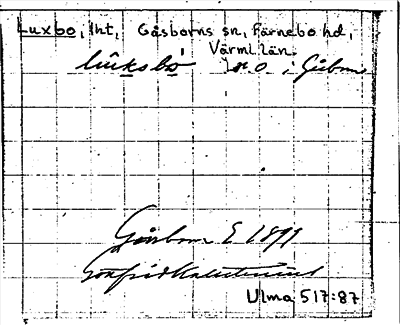 Luxbo, lht, Gåsborns sn, Färnebo hd,
Värml. län.
lùksbò i Gåsborn
Gåsborn E 1899
Gottfrid Kallstenius
Ulma 517:87